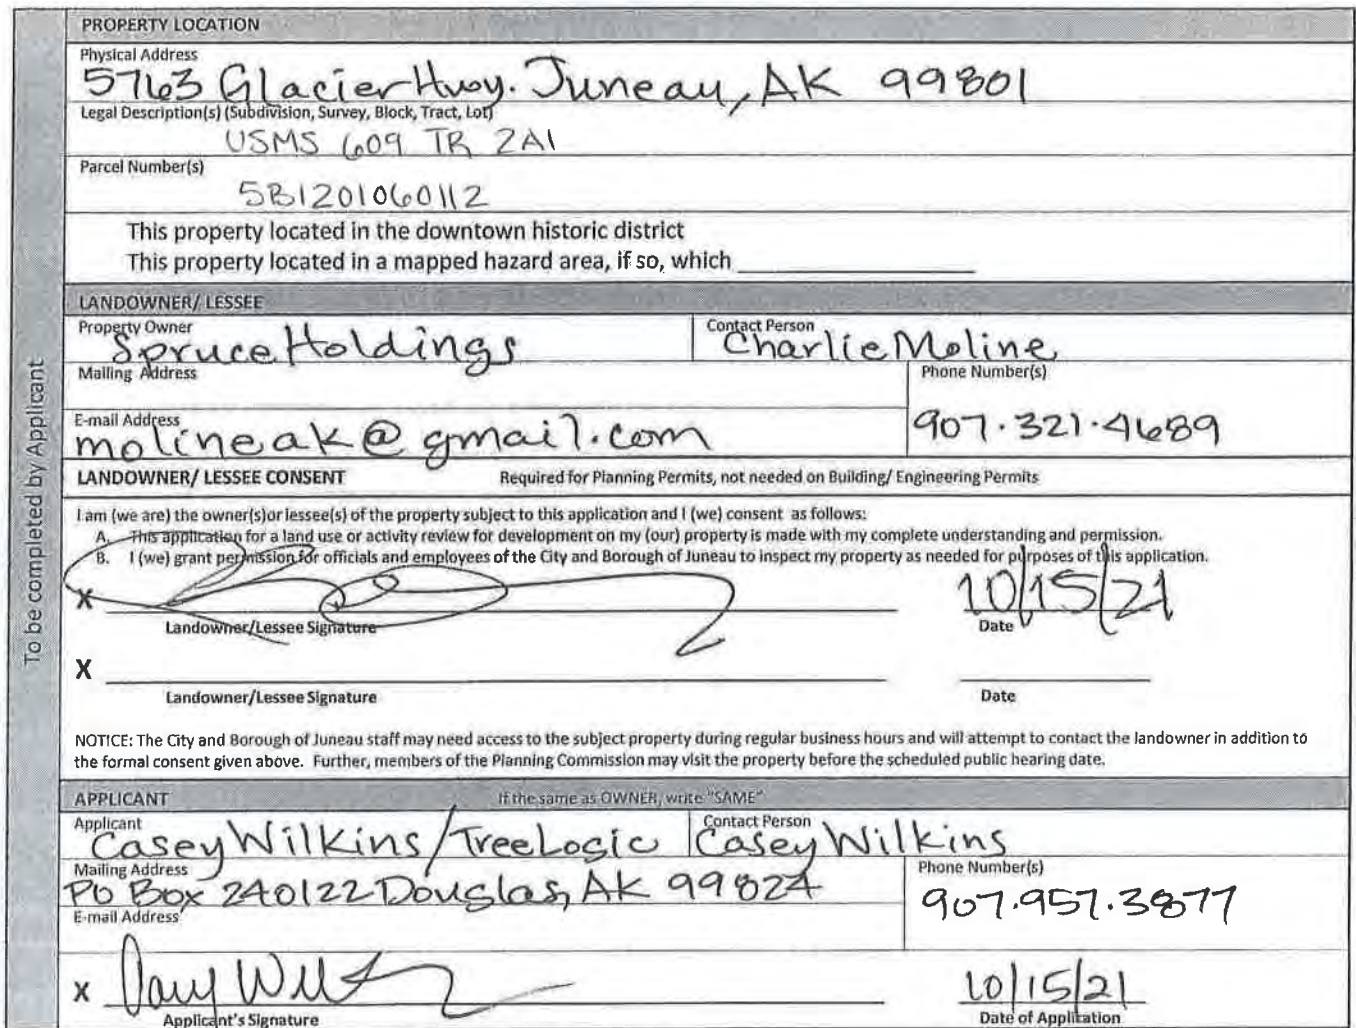 PROPERTY LOCATION
Physical Address
5763 Glacier Hwy. Juneau, AK 99801
Legal Description(s) (Subdivision, Survey, Block, Tract, Lot)
USMS 609 TR 2A1
Parcel Number(s)
5B1201060112
This property located in the downtown historic district
This property located in a mapped hazard area, if so, which
LANDOWNER/ LESSEE
Property Owner
Spruce Holdings
Contact Person
Charlie Moline
Mailing Address
Phone Number(s)
907.321.4689
E-mail Address
molineak@gmail.com
LANDOWNER/ LESSEE CONSENT Required for Planning Permits, not needed on Building/ Engineering Permits
I am (we are) the owner(s)or lessee(s) of the property subject to this application and I (we) consent as follows:
A. This application for a land use or activity review for development on my (our) property is made with my complete understanding and permission.
B. I (we) grant permission for officials and employees of the City and Borough of Juneau to inspect my property as needed for purposes of this application.
X 10/15/21
Landowner/Lessee Signature Date
X
Landowner/Lessee Signature Date
NOTICE: The City and Borough of Juneau staff may need access to the subject property during regular business hours and will attempt to contact the landowner in addition to
the formal consent given above. Further, members of the Planning Commission may visit the property before the scheduled public hearing date.
APPLICANT If the same as OWNER, write "SAME"
Applicant
Casey Wilkins/TreeLogic
Contact Person
Casey Wilkins
Mailing Address
PO Box 240122 Douglas, AK 99824
Phone Number(s)
907.957.3877
E-mail Address
X 10/15/21
Applicant's Signature Date of Application
To be completed by Applicant